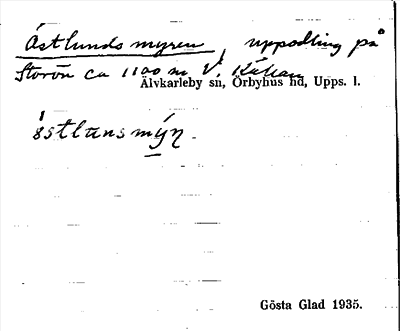 Östlundsmyren, uppodling på
Storön ca 1100 m V.
Älvkarleby sn, Örbyhus hd, Upps. l.
östlunsmýn.
Gösta Glad 1935.